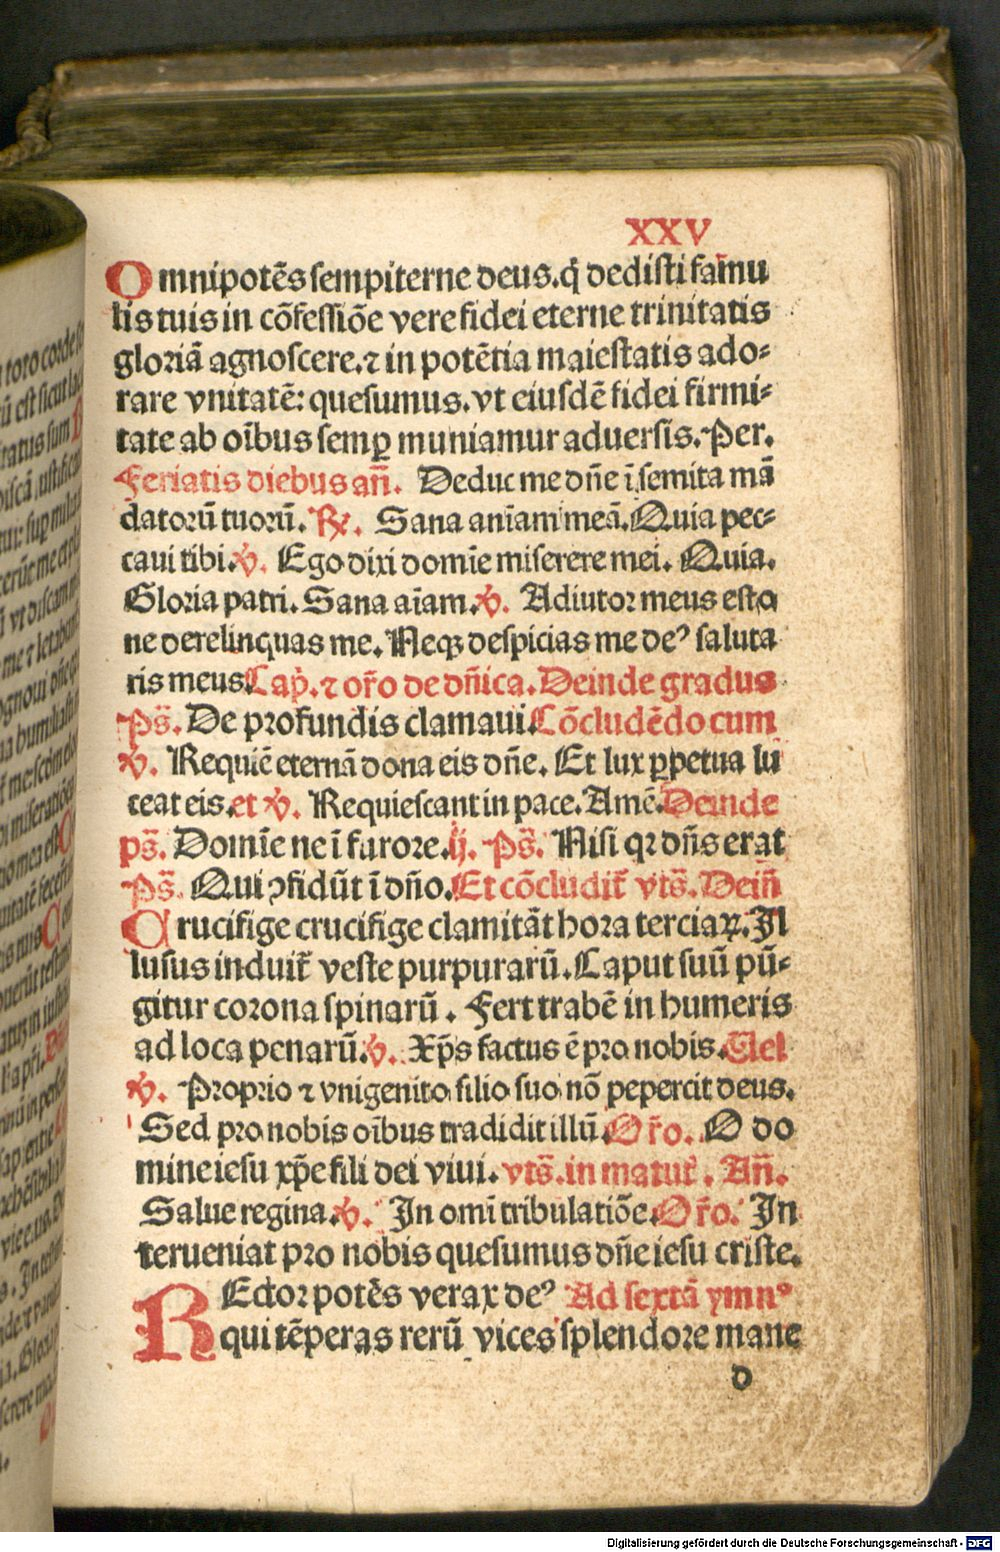 XXV
Omnipotēs sempiterne deus. q̄ dedisti famu
lis tuis in cōfessiōe vere fidei eterne trinitatis
gloriā agnoscere. ⁊ in potētia maiestatis ado⸗
rare vnitatē: quesumus. vt eiusdē fidei firmi⸗
tate ab oībus semꝑ muniamur aduersis. Per.
Feriatis diebus añ. Deduc me dñe ī semita mā
datorū tuorū. ℟. Sana aniam meā. Quia pec⸗
caui tibi. ℣. Ego dixi domīe miserere mei. Quia.
Gloria patri. Sana aīam. ℣. Adiutor meus esto
ne derelinquas me. Neqꝫ despicias me deꝰ saluta
ris meus Cap̄. ⁊ or̄o de dñica. Deinde gradus
Ps̄. De profundis clamaui. Cōcludēdo cum
℣. Requiē eternā dona eis dñe. Et lux ꝑpetua lu
ceat eis. et ℣. Requiescant in pace. Amē. Deinde
ps̄. Domīe ne ī furore. ij. Ps̄. Nisi qꝛ dñs erat
Ps̄. Qui ꝯfidūt ī dño. Et cōcludit̄ vts̄. Deiñ
Crucifige crucifige clamitāt hora terciaꝝ. Il
lusus induit̄ veste purpurarū. Caput suū pū⸗
gitur corona spinarū. Fert trabē in humeris
ad loca penarū. ℣. Xp̄s factus ē pro nobis. Uel
℣. Proprio ⁊ vnigenito filio suo nō pepercit deus.
Sed pro nobis oībus tradidit illū. Or̄o. O do
mine iesu xp̄e fili dei viui. vts̄. in matut̄. Añ.
Salue regina. ℣. In omī tribulatiōe. Or̄o. In
terueniat pro nobis quesumus dñe iesu criste.
REctor potēs verax deꝰ Ad sextā ymnꝰ
qui tēperas rerū vices splendore mane
d
Digitalisierung gefördert durch die Deutsche Forschungsgemeinschaft - DFG